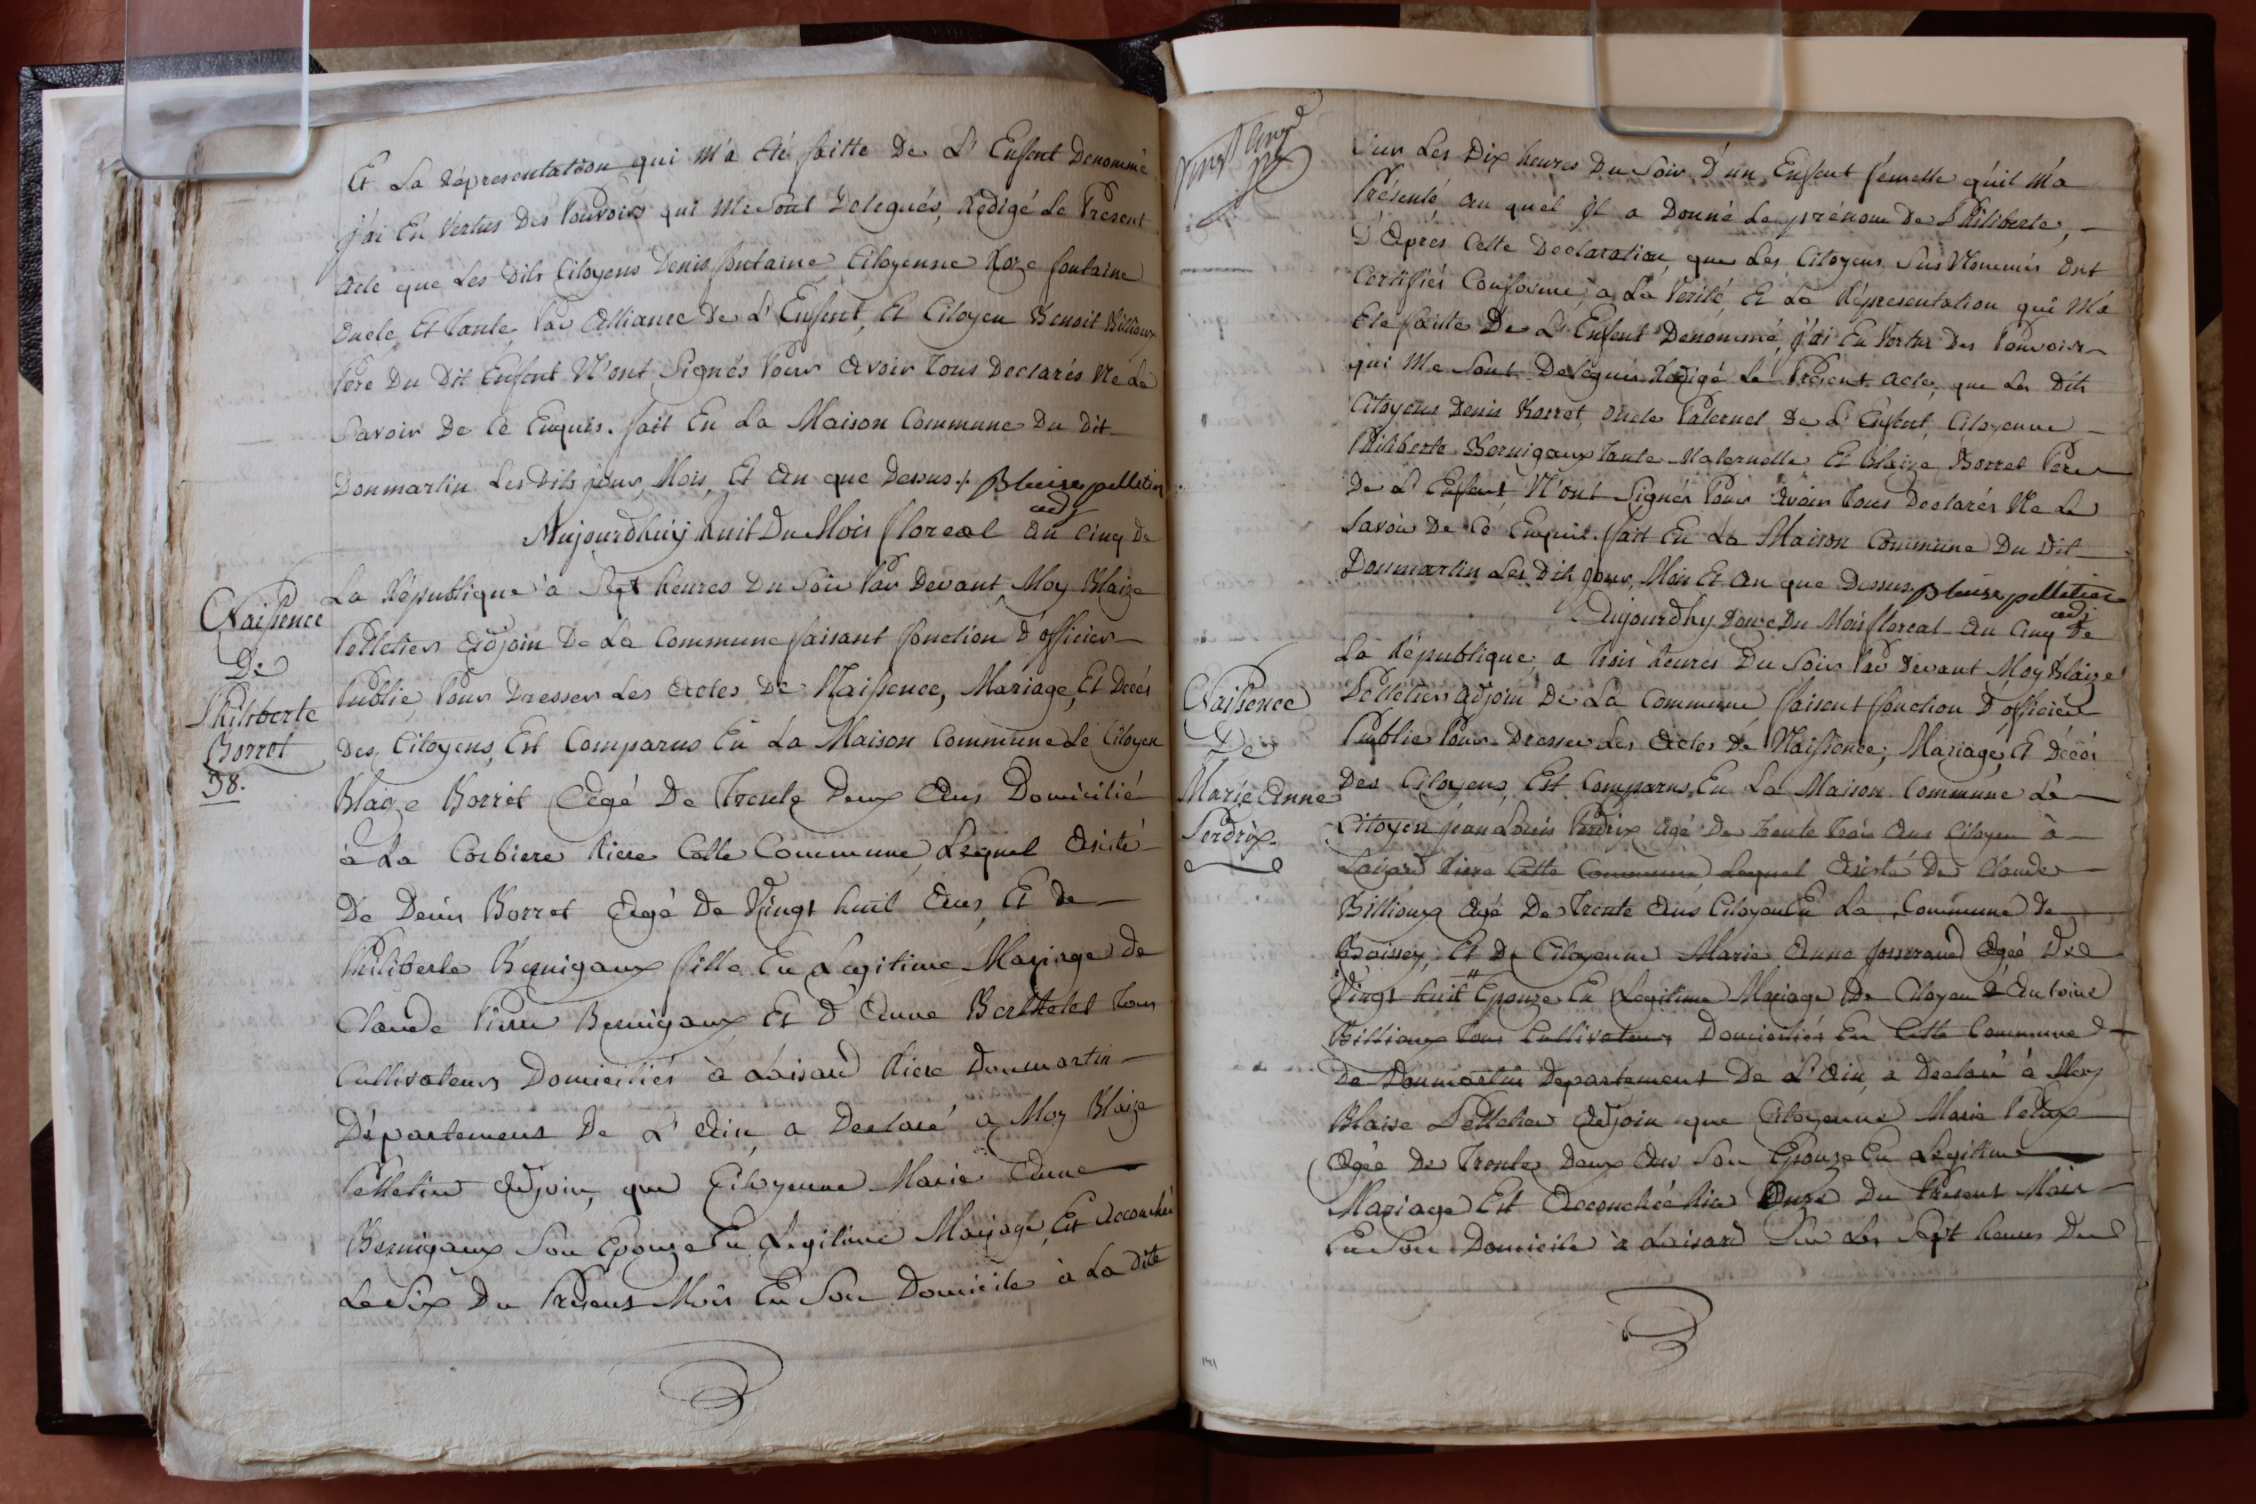 Et La répresentation qui m'a été faitte De L'Enfent Denommé
j'ai En Vertus Des Pouvoirs qui Me Sont Delegués, Redigé Le Présent
acte que Les Dits Citoyens Denis fontaine Citoyenne Roze fontaine
oncle Et tante Par Alliance De L'Enfent, Et Citoyen Benoit Billioux
Pere Du Dit Enfent N'ont Signés Pour Avoir tous Declarés Ne Le
Savoir De Ce Enquis. fait En La Maison Commune Du Dit
Donmartin Les Dits jour, Mois, Et An que Dessus ./. Blaise pelletier
adj
Aujourdhuy huit Du Mois floreal an cinq De
La République à Sept heures Du Soir Par Devant Moy Blaize
Pelletier Adjoin De La Commune faisant fonction D'officier
Public Pour Dresser Les Actes De Naissence, Mariage, Et Decés
Des Citoyens, Est Comparus En La Maison Commune Le Citoyen
Blaize Borret Agé De Trente Deux Ans Domicilié
à La Corbiere Riere Cette Commune, Lequel Asisté
De Denis Borret Agé De Vingt huit Ans, Et de
Philiberte Bernigaux fille En Legitime Mariage De
Claude Pierre Bernigaux Et D'Anne Berthelet tous
Cultivateurs Domiciliés à Loisard Riere Donmartin
Département De L'Ain, a Declaré a Moy Blaize
Pelletier Adjoin, que Citoyenne Marie Anne
Bernigaux Son Epouze En Legitime Mariage, Est Accouchée
Le Six Du Présent Mois En Son Domicile à La Dite
Naissence
De
Philiberte
Borret
38.
Sur Les Dix heures Du Soir D'un Enfent fémelle qu'il M'a
Présenté au quel Il a Donné Le prénom De Philiberte,
D'Aprés Cette Declaration, que Les Citoyens Sus Nommés Ont
Certifiés Conforme à La Verité, Et La Répresentation qui M'a
Eté faitte De L'Enfent Denommé, j'ai En Vertu Des Pouvoirs
qui Me Sont Delegués Redigé Le Présent Acte, que Les Dits
Citoyens Denis Borret, oncle Paternel De L'Enfent, Citoyenne
Philiberte Bernigaux Tante Maternelle Et Blaize Borret Pere
De L'Enfent N'ont Signés Pour Avoir tous Declarés Ne Le
Savoir De Ce Enquis. fait En La Maison Commune Du Dit
Donmartin Les Dits jour, Mois Et An que Dessus. Blaise pelletier
adj
Aujourdhy Douze Du Mois floreal An Cinq De
La République, a trois heures Du Soir Par Devant Moy Blaize
Pelletier Adjoin De La Commune faisent fonction D'officier
Public Pour Dresser Les Actes De Naissence, Mariage, Et Décés
Des Citoyens, Est Comparus En La Maison Commune Le
Citoyen jean Louis Perdrix Agé De Trente Trois Ans Citoyen à
Loisard Riere Cette Commune Lequel Asisté De Claude
Billioux Agé De Trente Ans Citoyen En La Commune De
Boissey, Et De Citoyenne Marie Anne josserand Agée De
Vingt huit Epouze En Legitime Mariage De Citoyen Antoine
Billioux Tous Cultivateurs Domiciliés En Cette Commune
De Donmartin Departement De L'Ain, a Declaré à Moy
Blaise Pelletier Adjoin que Citoyenne Marie
Agée De Trente Deux Ans Son Epouze En Legitime
Mariage Est Accouchée Hier Onze Du Présent Mois
En Son Domicile à Loisard Sur Les Sept heures Du
Naissence
De
Marie Anne
Perdrix
141